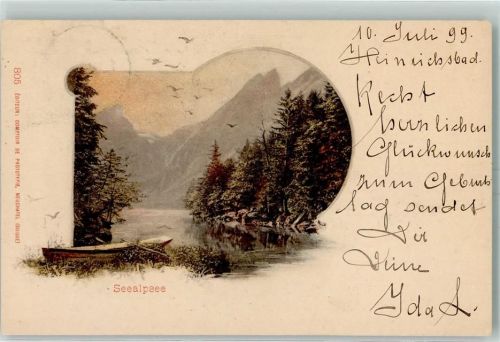 10. Juli 99.
Heinrichsbad.
Recht
herzlichen
Glückwunsch
zum Geburts
tag sendet
Dir
Deine
Ida L.
Seealpsee
805 EDITEUR: COMPTOIR DE PHOTOTYPIE, NEUCHATEL (SUISSE)